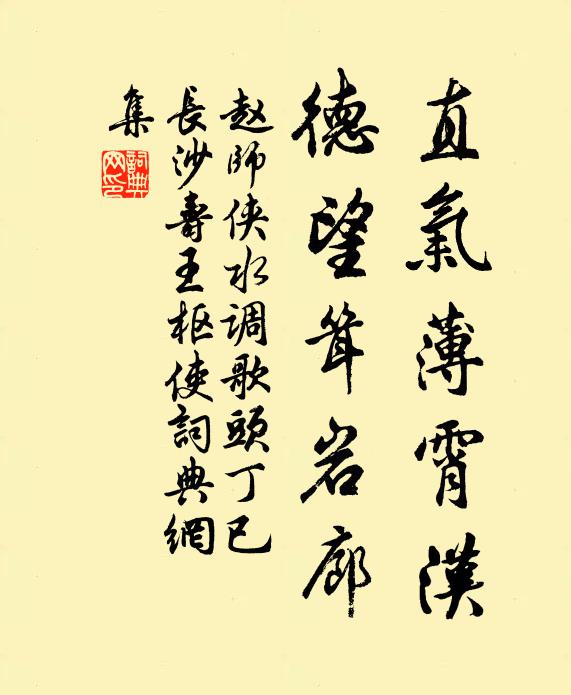 直氣薄霄漢
德望耸岩廊
赵師俠水调歌頭丁已
長沙壽王枢使詞典網
集
詞典网印